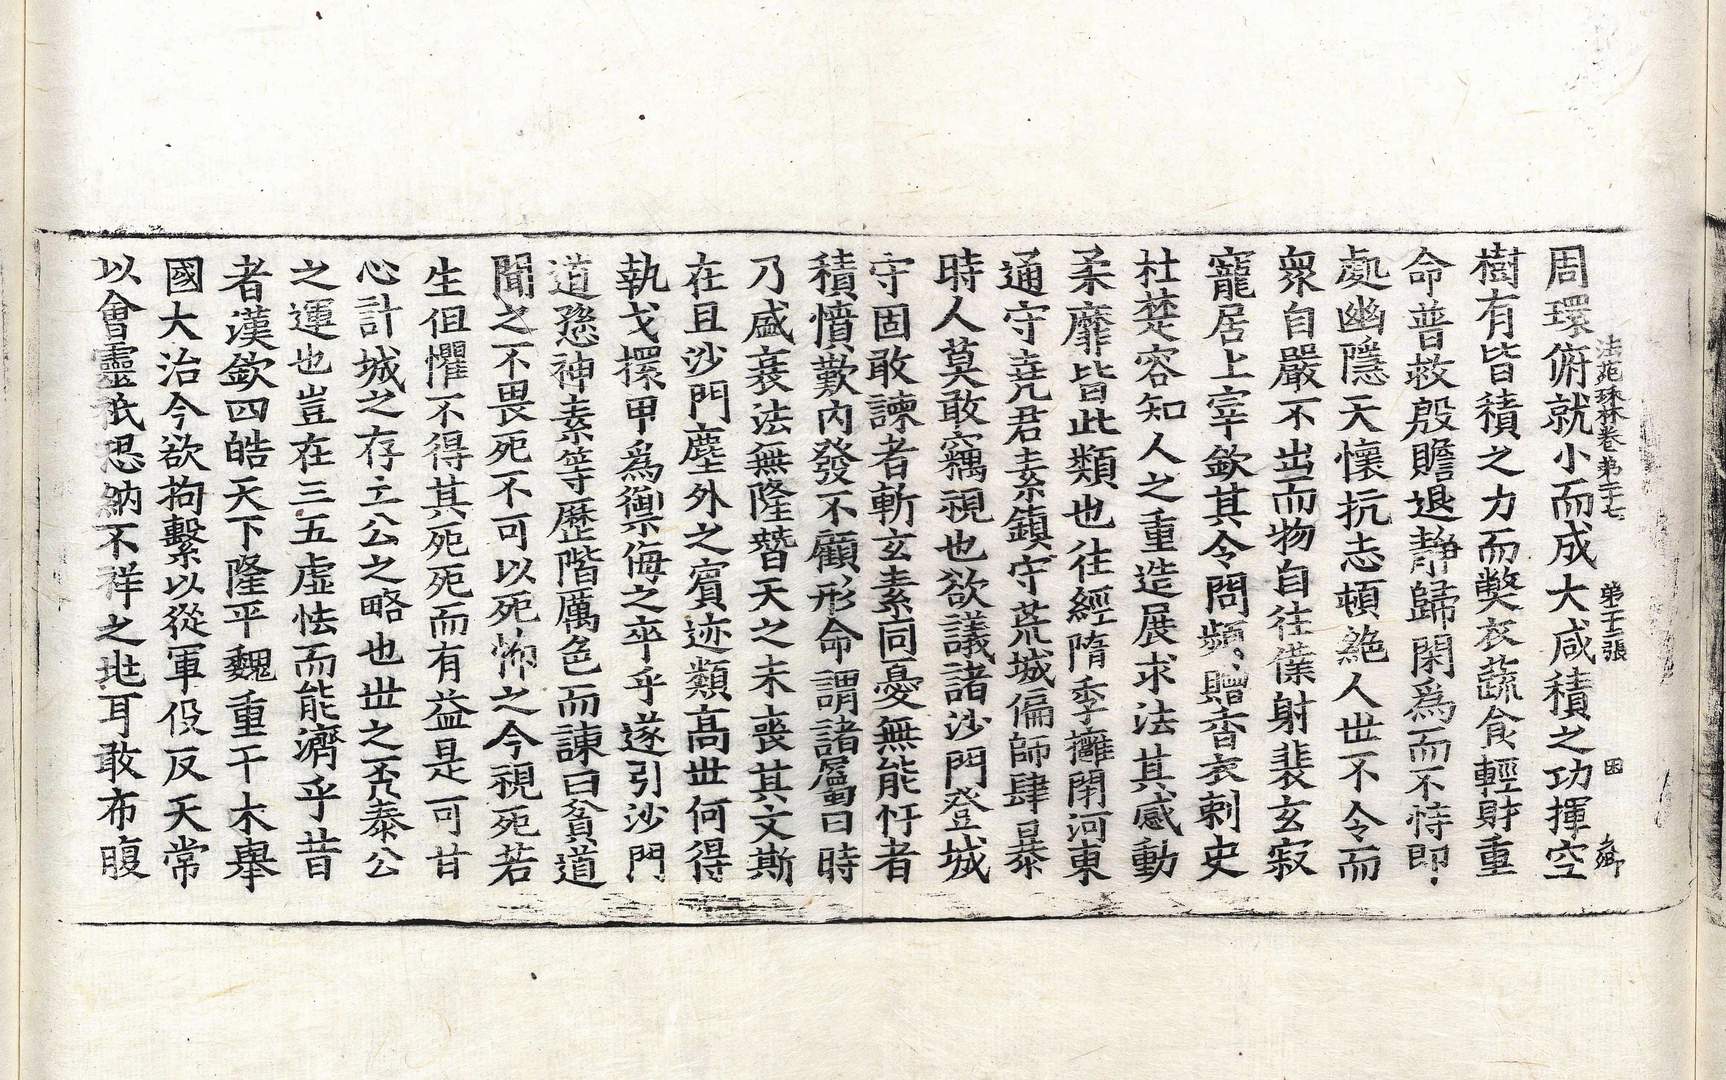 法苑珠林卷第二十七 第二十二張 困 
周環俯就小而成大咸積之功揮空
樹有皆積之力而獘衣蔬食輕財重
命普救殷贍退靜歸閑爲而不恃即
處幽隱天懷抗志頓絶人世不令而
衆自嚴不出而物自往僕射裴玄寂
寵居上宰欽其令問頻贈香衣刺史
杜楚容知人之重造展求法其感動
柔靡皆此類也往經隋季擁閉河東
通守堯君素鎮守荒城偏師肆暴
時人莫敢竊視也欲議諸沙門登城
守固敢諫者斬玄素同憂無能忤者
積憤歎內發不顧形命謂諸屬曰時
乃盛衰法無隆替天之未喪其文斯
在且沙門塵外之賓迹類高世何得
執戈擐甲爲禦侮之卒乎遂引沙門
道愻神素等歷階厲色而諫曰貧道
聞之不畏死不可以死怖之今視死若
生但懼不得其死死而有益是可甘
心計城之存亡公之略也世之否泰公
之運也豈在三五虛怯而能濟乎昔
者漢欽四皓天下隆平魏重干木舉
國大治今欲拘繫以從軍役反天常
以會靈祇恐納不祥之地耳敢布腹